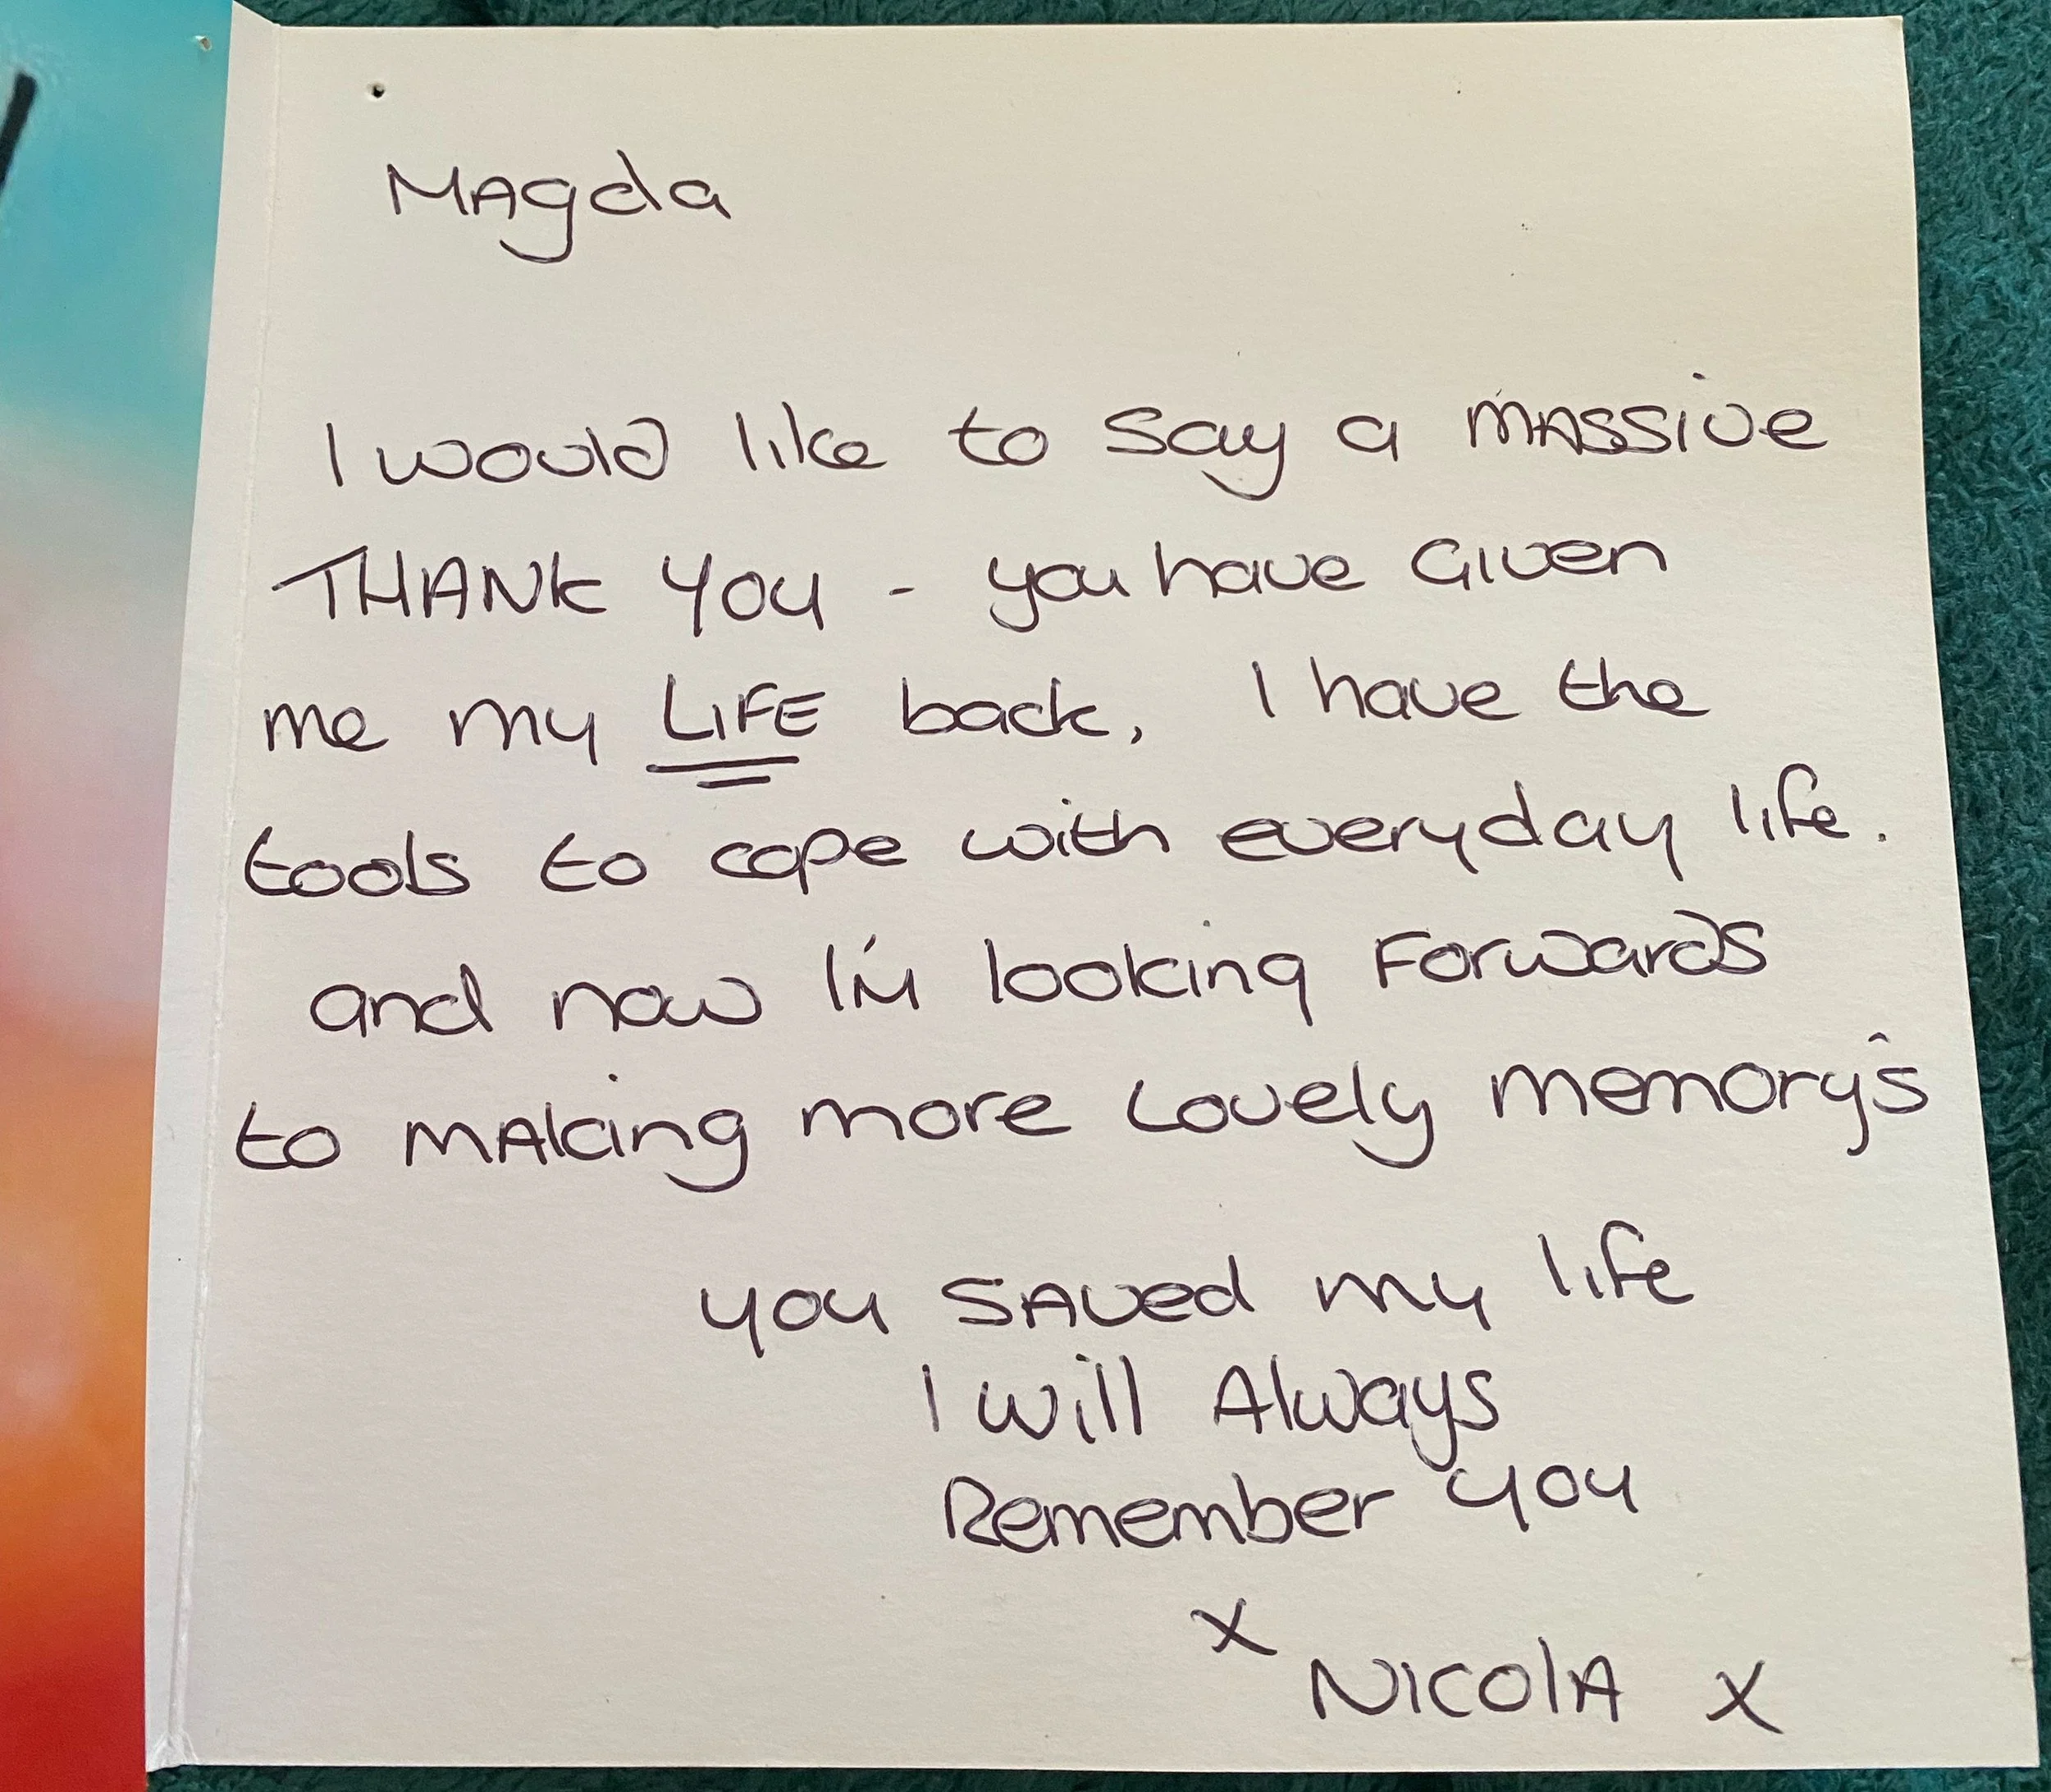 Magda
I would like to say a massive
THANK YOU - you have Given
me my LIFE back, I have the
tools to cope with everyday life.
and now I'm looking Forwards
to making more Lovely memory's
you saved my life
I will Always
Remember you
x
Nicola x